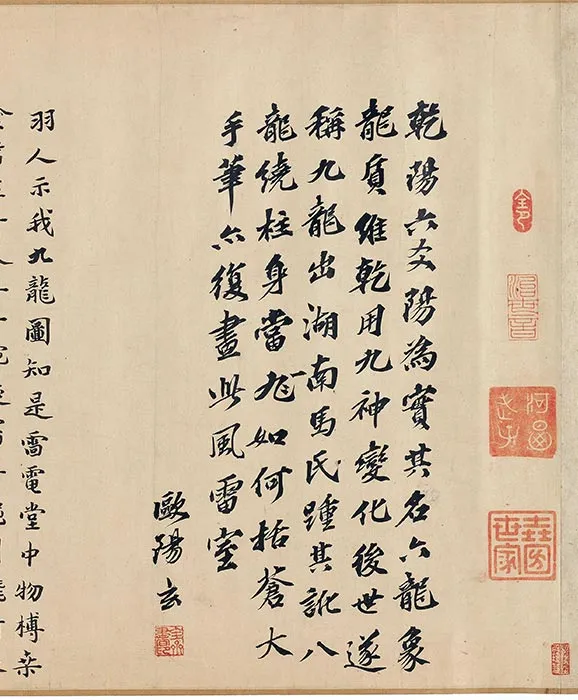 乾陽六爻陽為實其名六龍象
龍質維乾用九神變化後世遂
稱九龍出湖南馬氏踵其訛八
龍繞柱身當九如何括蒼大
手筆亦復畫此風雷室
歐陽玄
羽人示我九龍圖知是雷電堂中物榑桒